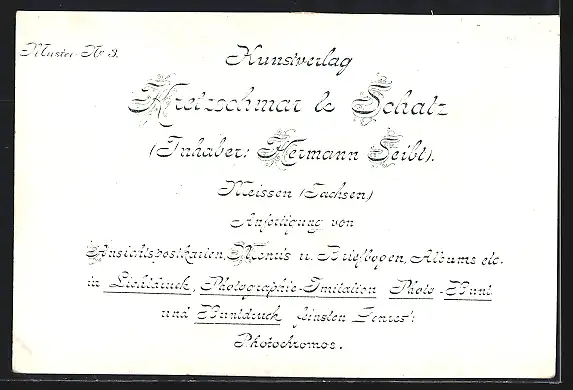 Muster-Nr 3.
Kunstverlag
Kretzschmar & Schatz
(Inhaber: Hermann Seibt).
Meissen (Sachsen)
Anfertigung von
Ansichtspostkarten, Menus u. Briefbogen, Albums etc.
in Lichtdruck, Photographie-Imitation Photo-Bunt
und Buntdruck feinsten Genres:
Photochromos.